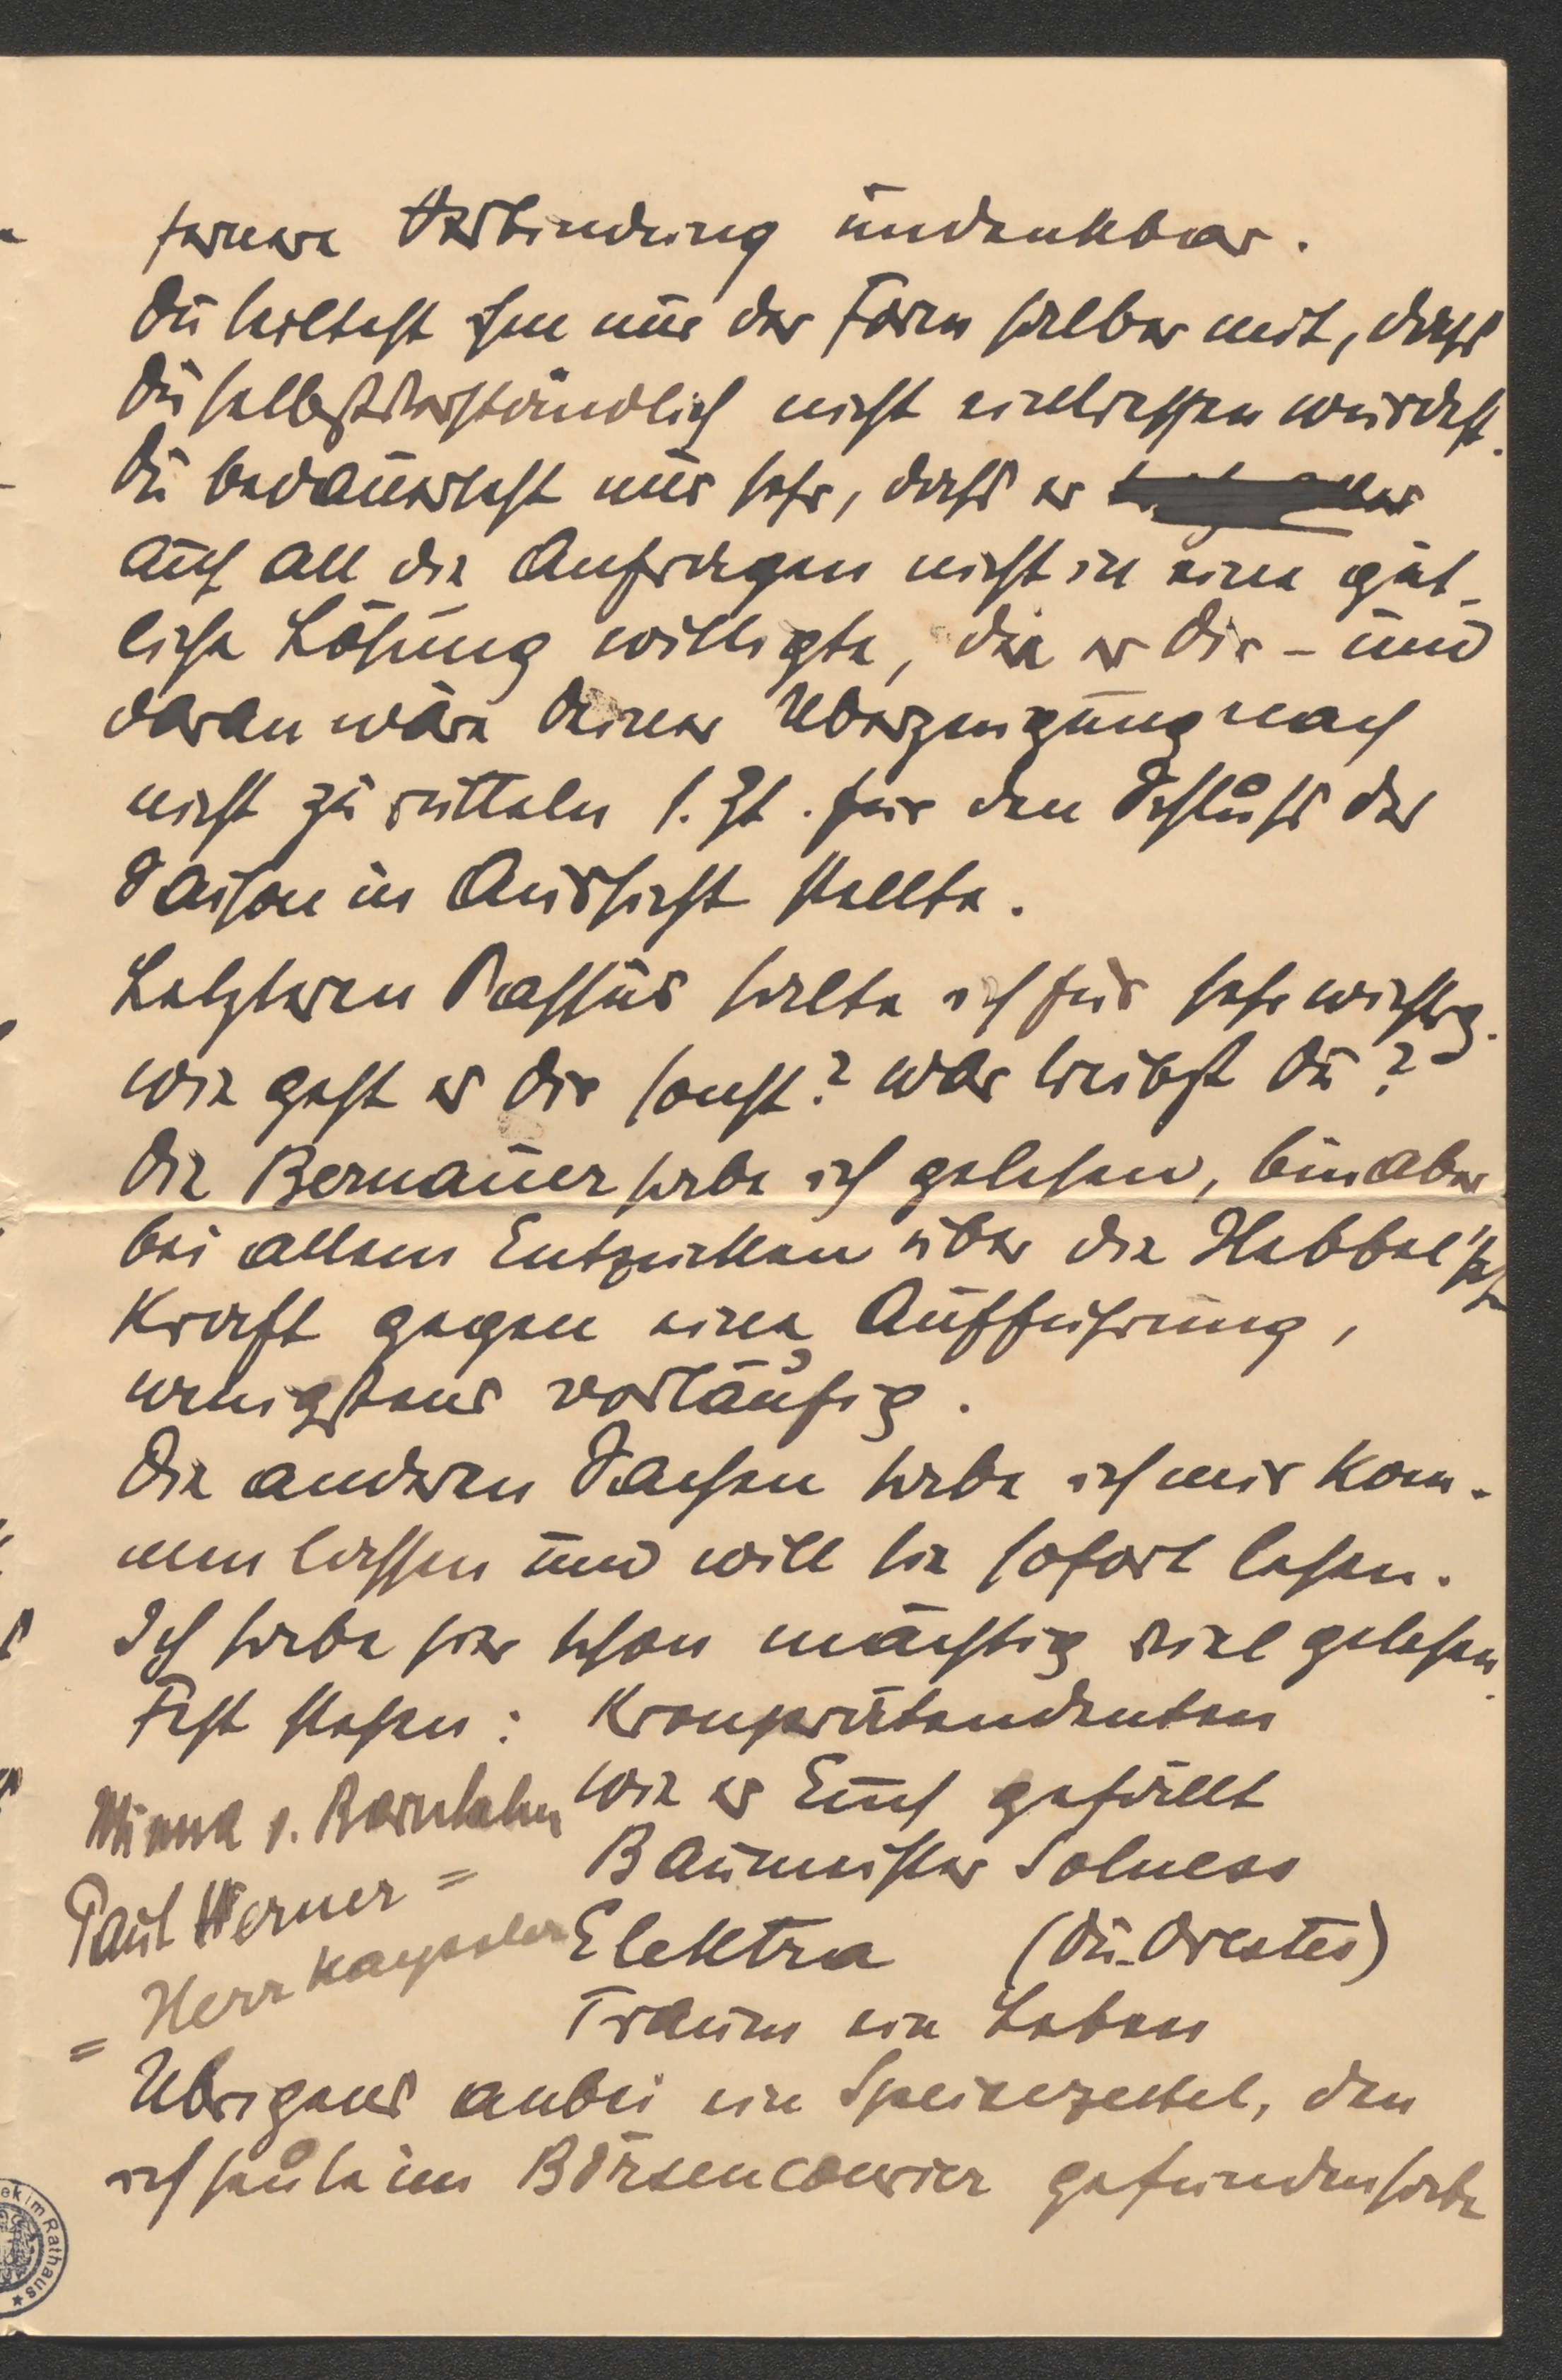 fernere Verbindung undenkbar.
Du teiltest ihm nur der Form halber mit, dass
Du selbstverständlich nicht einlassen würdest.
Du bedauertest nur sehr, dass er
auf all die Anfragen nicht in eine güt-
liche Lösung willigte, die er Dir – und
daran wäre Deiner Uberzeugung nach
nicht zu rütteln s. Zt. für den Schluss der
Saison in Aussicht stellte.
Letzteren Passus halte ich für sehr wichtig.
Wie geht es Dir sonst? Was treibst Du?
Die Bernauer habe ich gelesen, bin aber
bei allem Entzücken über die Hebbel'sche
Kraft gegen eine Aufführung,
wenigstens vorläufig.
Die anderen Sachen habe ich mir kom-
men lassen und will sie sofort lesen.
Ich habe hier schon mächtig viel gelesen.
Fest stehen: Kronprätendenten
Wie es Euch gefällt
Baumeister Solness
Elektra (Du-Orestes)
Traum ein Leben
Minna v. Barnhelm
Paul Werner =
= Herr Kayssler
Ubrigens anbei ein Speisezettel, den
ich heute im Börsencourier gefunden habe
ek im Rathaus *